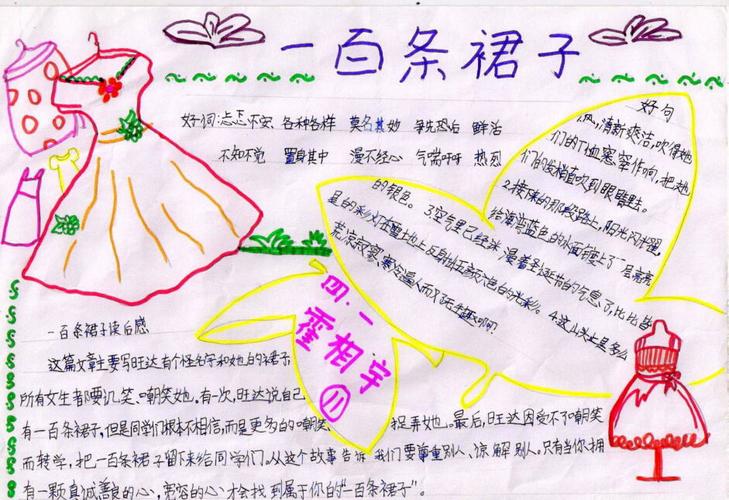 一百条裙子
好词:忐忑不安、各种各样 莫名其妙 争先恐后 鲜活
不知不觉 置身其中 漫不经心 气喘吁吁 热烈
好句
1.风,清新爽洁,吹得她
们的T恤窸窣作响,把她
们的发梢直吹到眼睛里去。
2.接下来的那段路上,阳光闪烁,
给海宫蓝色的水面镀上了一层亮亮
的银色。 3.空气里已经弥漫着圣诞节的气息了,比比皆
是的彩灯在雪地上反射出五颜六色的光彩。 4.这山头上是多么
荒凉寂寞、寒冷逼人而又了无生趣啊!
四.一
霍相宇
11
一百条裙子读后感
这篇文章主要写旺达有个怪名字和她的裙子
所有女生都要讥笑、嘲笑她,有一次,旺达说自己
有一百条裙子,但是同学们根本不相信,而是更多的嘲笑、 捉弄她。最后,旺达因受不了嘲笑
而转学,把一百条裙子留下来给同学们。从这个故事告诉我们要尊重别人、谅解别人。只有当你拥
有一颗真诚善良的心,宽容的心,才会找到属于你的“一百条裙子”。